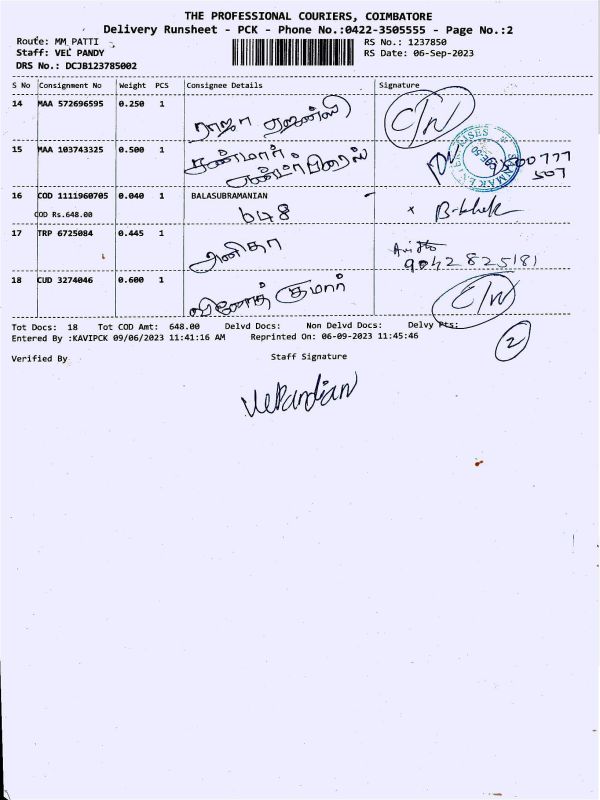 THE PROFESSIONAL COURIERS, COIMBATORE
Delivery Runsheet - PCK - Phone No.:0422-3505555 - Page No.:2
Route: MM PATTI
RS No.: 1237850
Staff: VEL PANDY
RS Date: 06-Sep-2023
DRS No.: DCJB123785002
S No Consignment No Weight PCS Consignee Details Signature
14 MAA 572696595 0.250 1 ராஜா ஏஜென்ஸி C/N
15 MAA 103743325 0.500 1
16 COD 1111960705 0.040 1 BALASUBRAMANIAN
COD Rs.648.00 648
17 TRP 6725084 0.445 1 அனிதா
9042825181
18 CUD 3274046 0.600 1 வினோத் குமார் C/N
Tot Docs: 18 Tot COD Amt: 648.00 Delvd Docs: Non Delvd Docs: Delvy Pts:
Entered By :KAVIPCK 09/06/2023 11:41:16 AM Reprinted On: 06-09-2023 11:45:46
2
Verified By Staff Signature
VelPandian